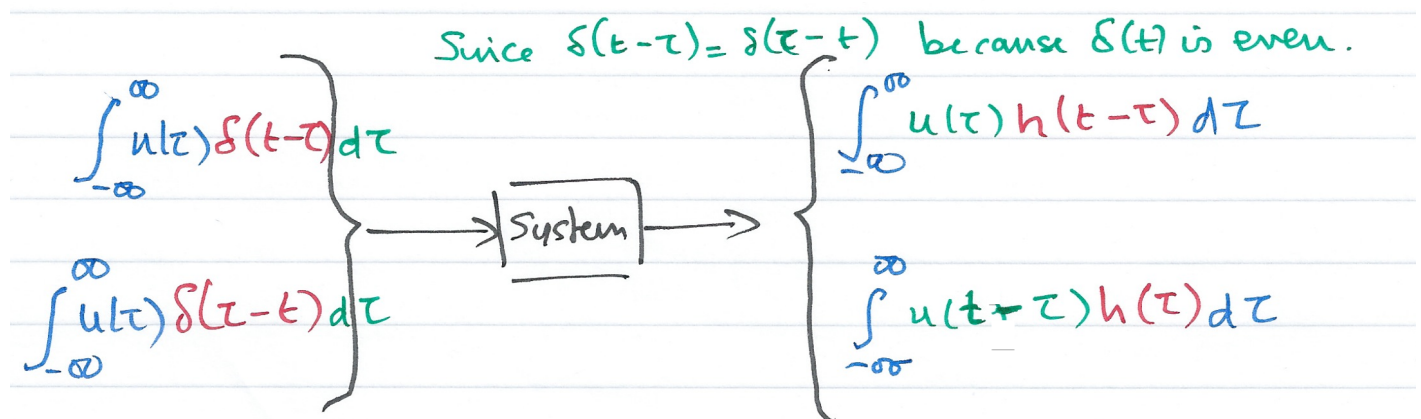 Since δ(t-τ) = δ(τ-t) because δ(t) is even.
∫_{-∞}^{∞} u(τ) δ(t-τ) dτ
∫_{-∞}^{∞} u(τ) δ(τ-t) dτ
System
∫_{-∞}^{∞} u(τ) h(t-τ) dτ
∫_{-∞}^{∞} u(t-τ) h(τ) dτ